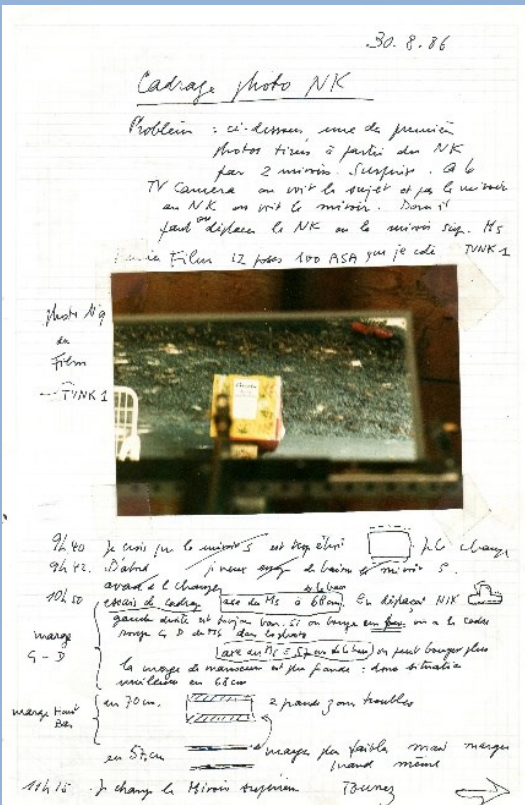 30.8.86
Cadrage photo NK
Problem : ci-dessous, une des premières
photos tirées à partir du NK
par 2 miroirs. Surprise. à la
TV Camera on voit le sujet et pas le miroir
au NK on voit le miroir. Donc il
faut ou déplacer le NK ou le miroir sup. Ms
Film 12 poses 100 ASA que je cote TVNK1
photo N°9
du
Film
TVNK1
9h40 Je crois que le miroir S est trop étroit je le change
9h42. D'abord je veux essay de baisser le miroir S.
avant de changer
10h50 essais de cadrage axe du Ms à 68cm. En déplaçant NIK
gauche droite est toujours bon. Si on bouge on a le cadre
rouge G D du MS dans la photo
marge
G - D
axe du Ms = 57cm on peut bouger plus
la marge de manoeuvre est plus grande : donc situation
meilleure en 68cm
marge Haut
Bas
en 70cm. 2 grandes zones troubles
en 57cm marges plus faibles mais marges
quand même
11h15 Je change le Miroir supérieur Tournez